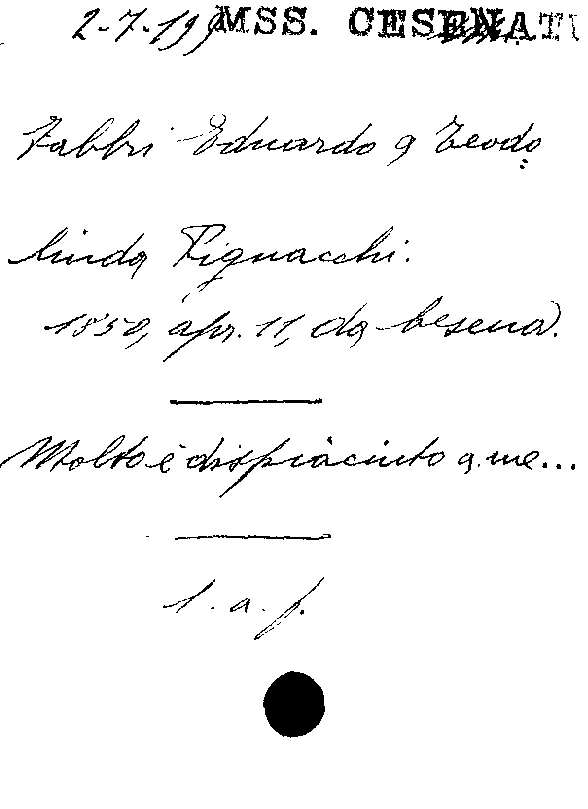 2-7-19 MSS. CESENAT
Fabbri Eduardo a Teodo
linda Pignacchi.
1850, apr. 11, da Cesena.
Molto è dispiaciuto a me...
l. a. f.